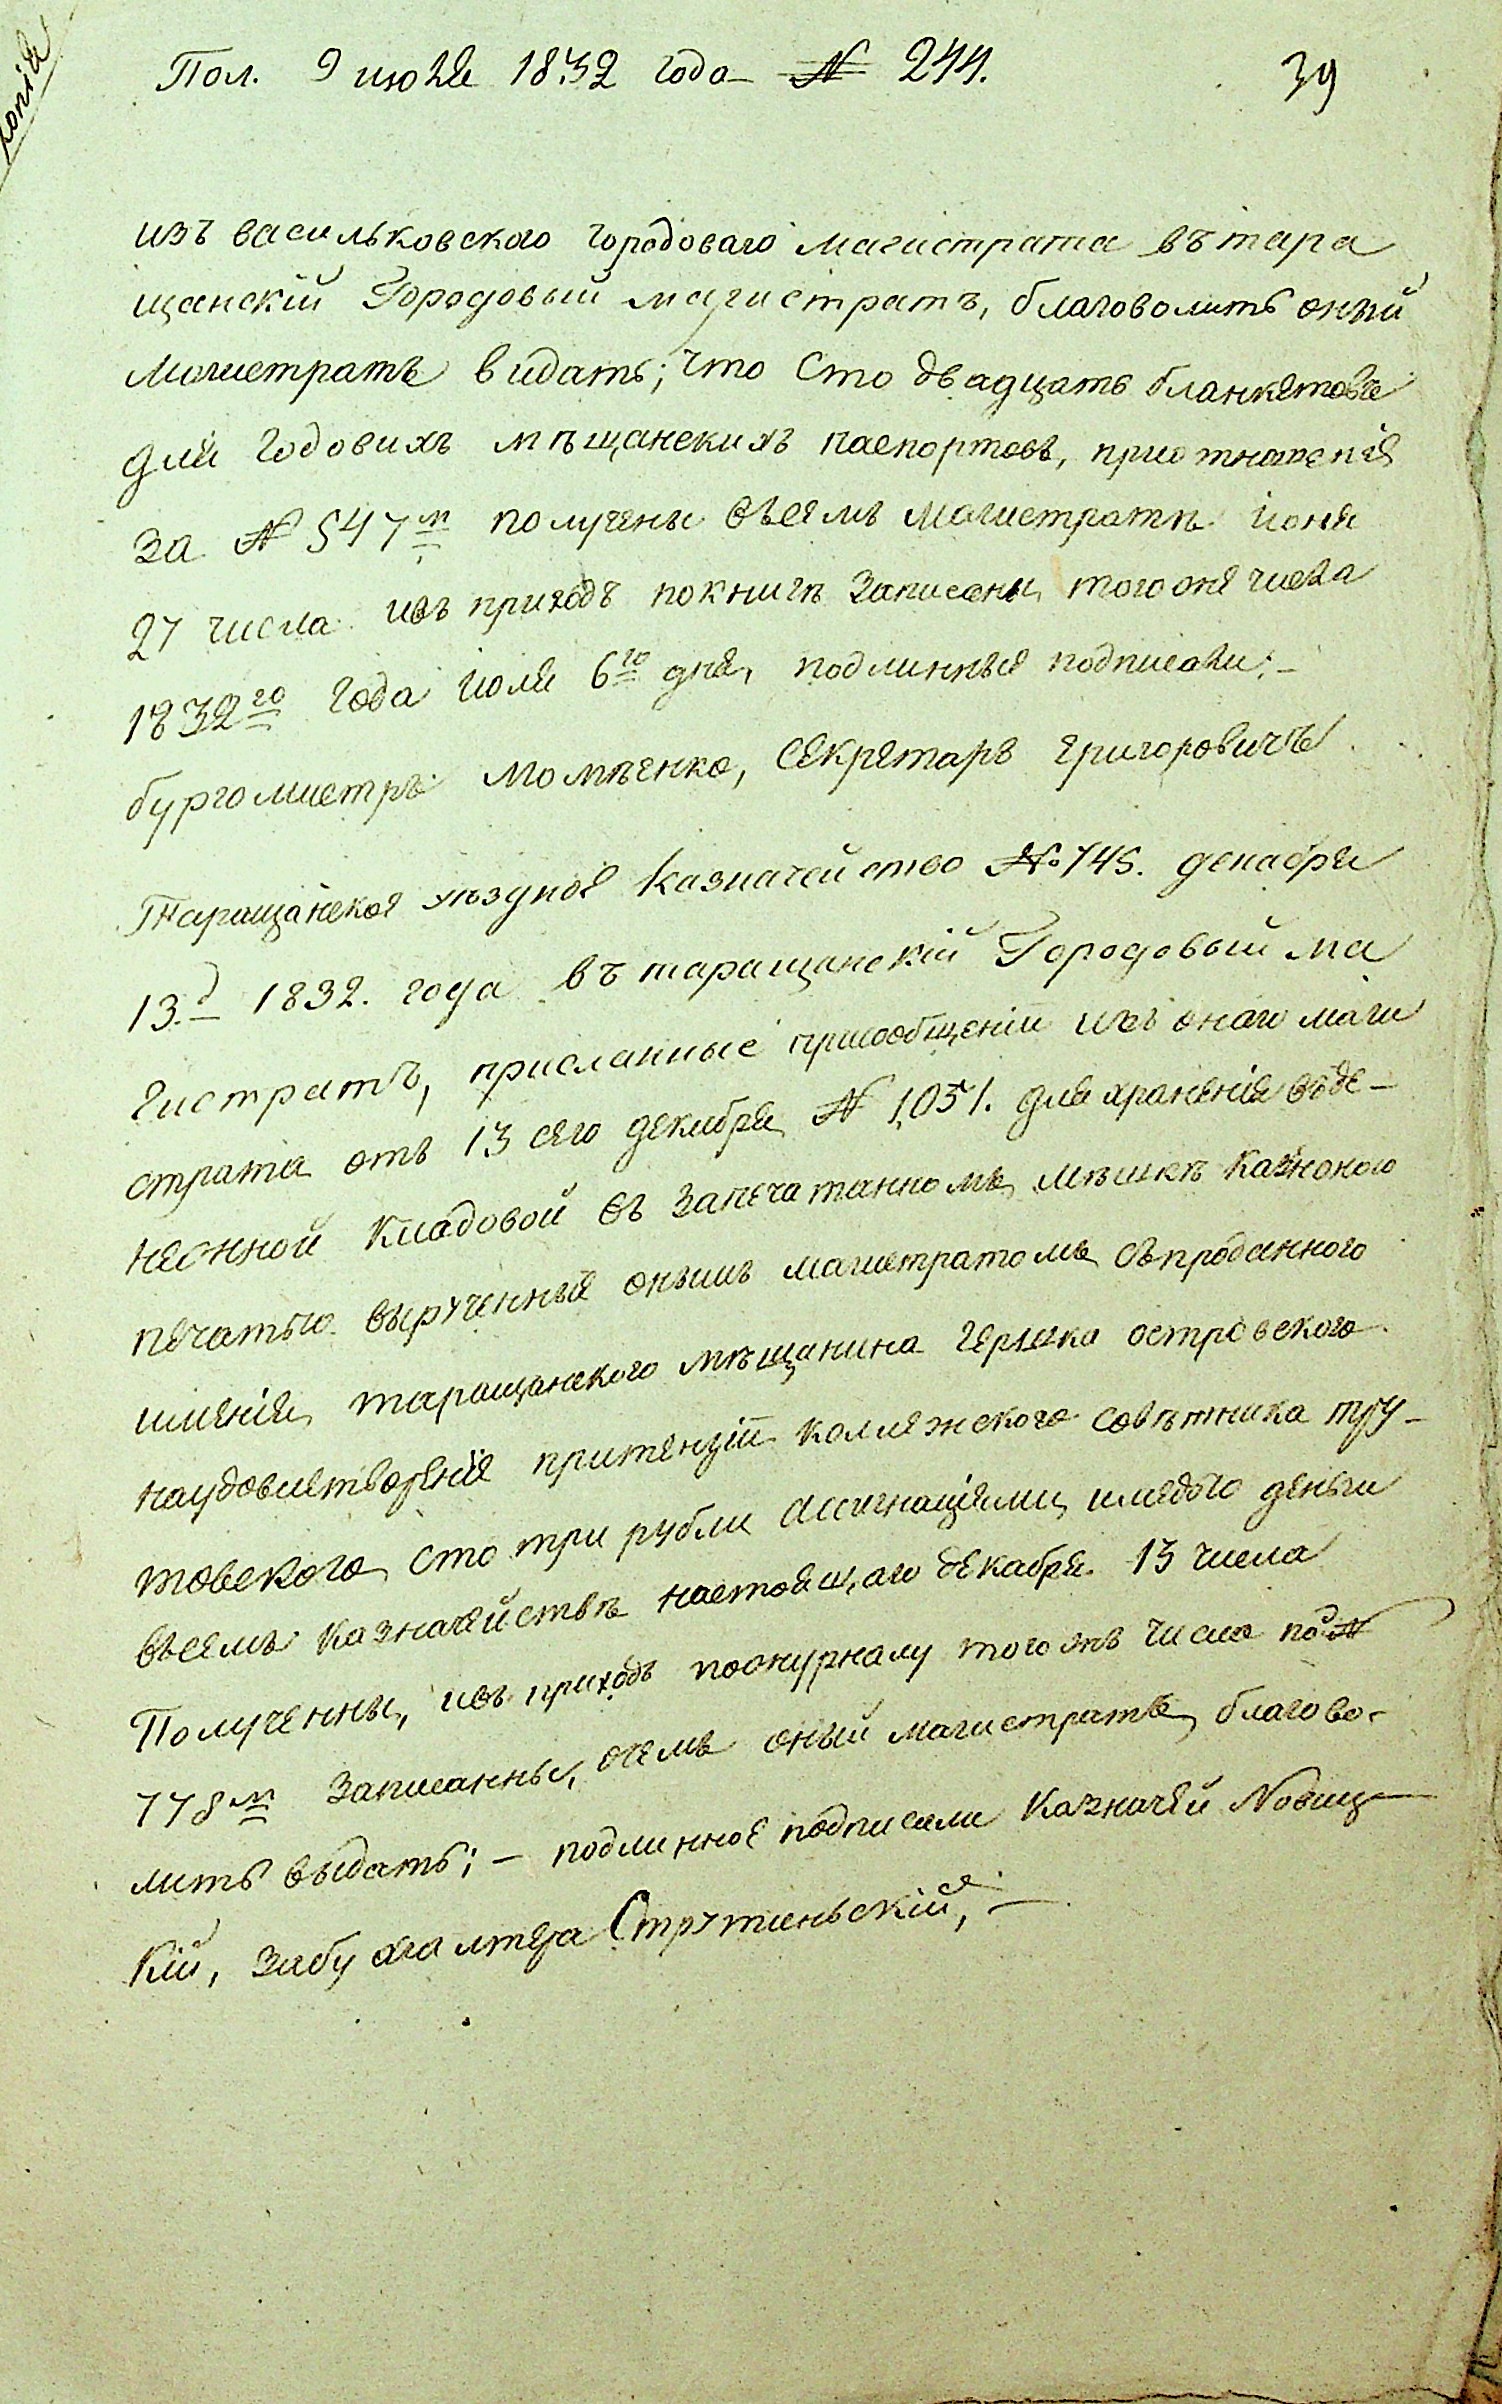 копія
Пол. 9 июля 1832 года № 244.
39
изъ васильковского городоваго магистрата въ тара
щанскій Городовый магистратъ, благоволитъ оный
магистратъ видать; что сто двадцать бланкетовъ
для годовихъ мѣщанскихъ паспортовъ, приотношенія
за № 547м получены въсемъ магистратѣ іюня
27 числа ивъ приходъ покнигѣ записаны того оне числа
1832го года іюля 6го дня, подлинные подписали:-
бургомистръ секретарь григоровичъ
Таращанское уѣздное казначейство № 745. декабря
13.д 1832. года въ таращанскій Городовый ма
гистратъ, присланные присообщеніи изъ онаго маги
страта отъ 13 сего декабря № 1051. для храненія въде-
нежной кладовой въ запечатанномъ мѣшкѣ казноного
печатью вырученные онымъ магистратомъ съпроданного
имѣнія таращанского мѣщанина гершка островского
наудовлетвореніе притензіи коллежского совѣтника тру-
товского сто три рубли ассигнаціями, деньги
въсемъ казначействѣ настоящаго декабря 13 числа
Полученны, ивъ приходъ поожурналу того жъ числа под №
778м записанны, очемъ оный магистратъ, благово-
литъ выдать; - подлинное подписали казначей Новиц-
кій, забухгалтера Струтиньскій, -